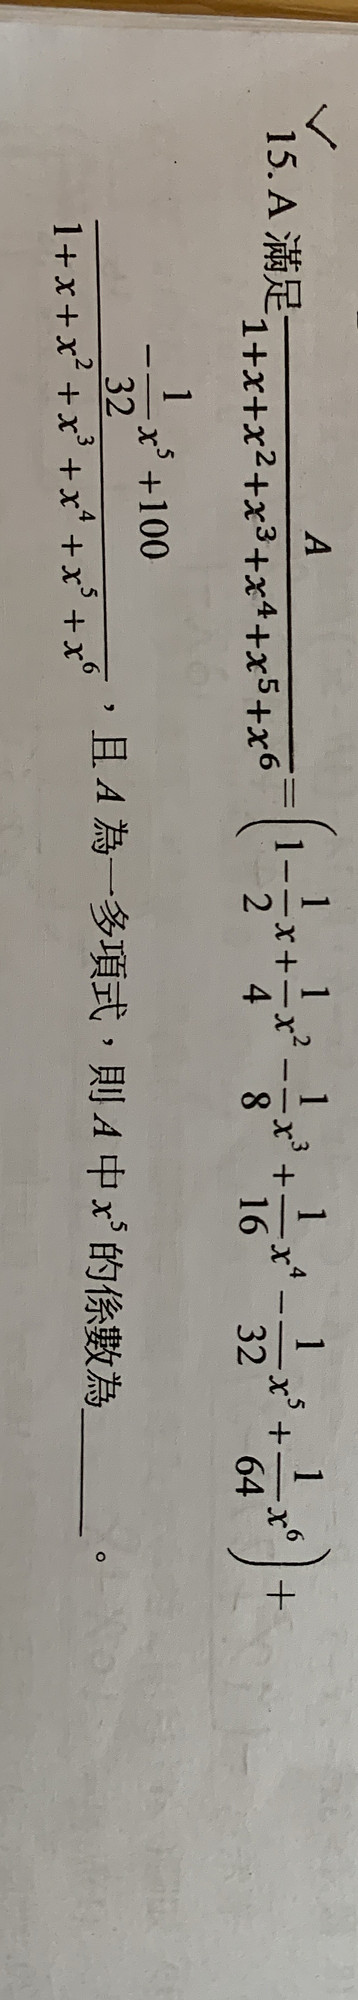 ✓
15. A 滿足 \frac{A}{1+x+x^2+x^3+x^4+x^5+x^6} = \left(1-\frac{1}{2}x+\frac{1}{4}x^2-\frac{1}{8}x^3+\frac{1}{16}x^4-\frac{1}{32}x^5+\frac{1}{64}x^6\right)+
\frac{-\frac{1}{32}x^5+100}{1+x+x^2+x^3+x^4+x^5+x^6}，且 A 為一多項式，則 A 中 x^5 的係數為______。